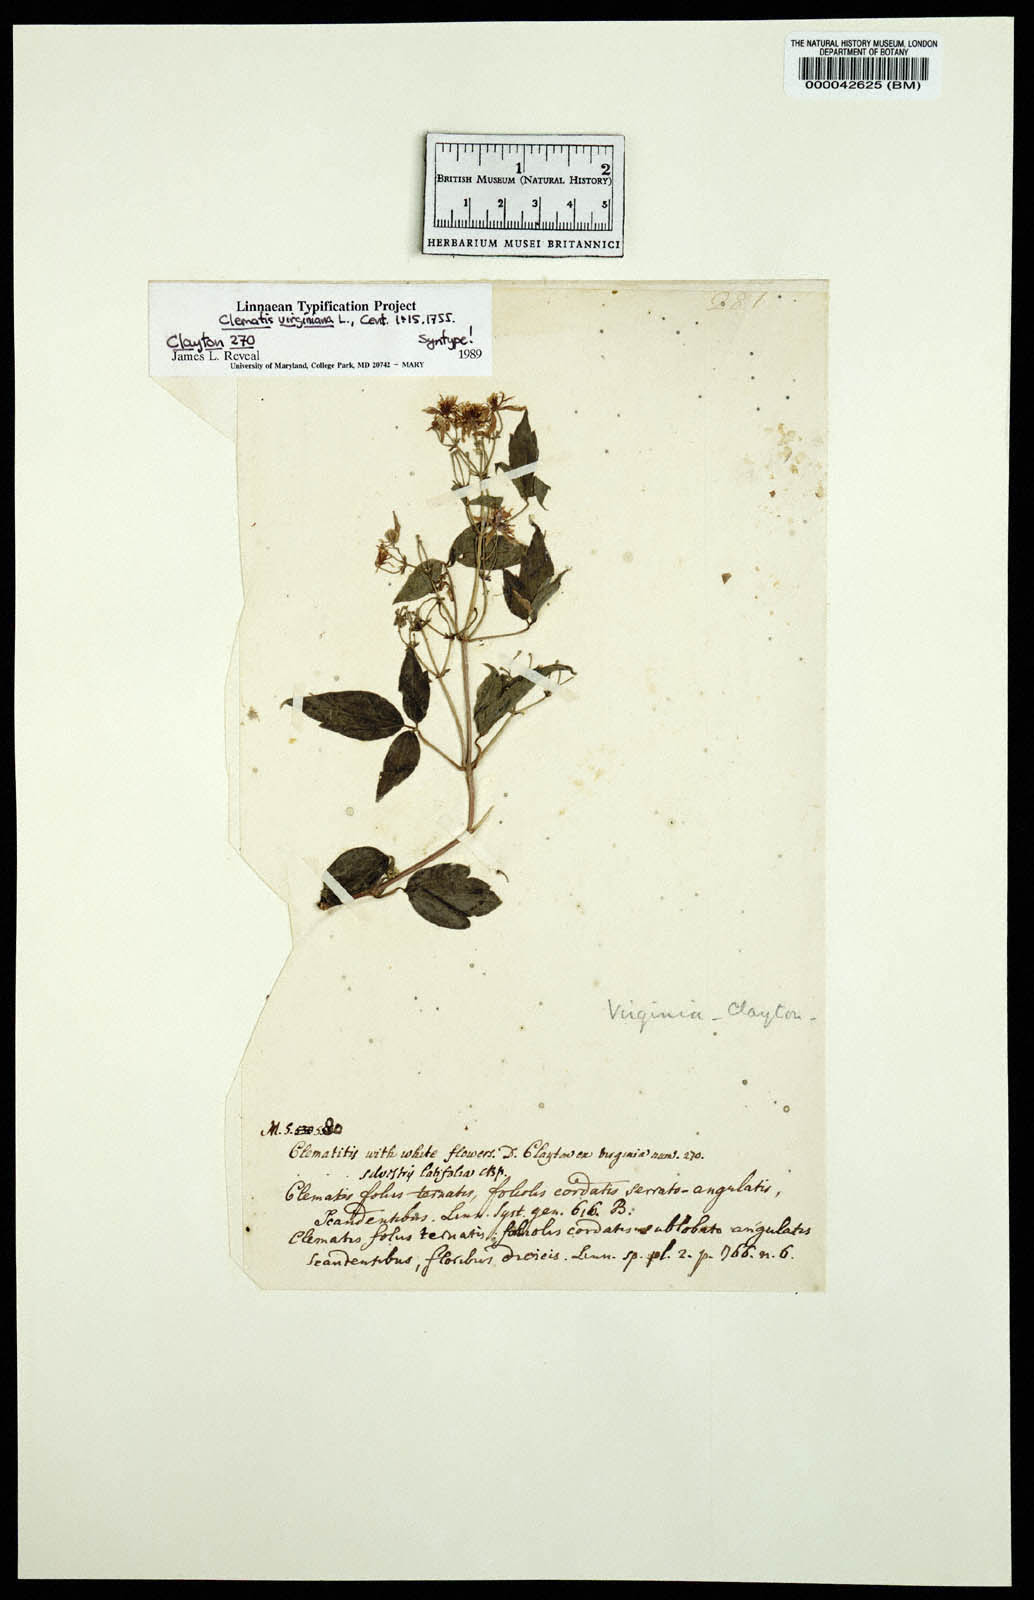 THE NATURAL HISTORY MUSEUM, LONDON
DEPARTMENT OF BOTANY
000042625 (BM)
1 2
BRITISH MUSEUM (NATURAL HISTORY)
1 2 3 4 5
HERBARIUM MUSEI BRITANNICI
Linnaean Typification Project
Clematis virginiana L., Cent. 1:15.1755.
Clayton 270 Syntype!
James L. Reveal 1989
University of Maryland, College Park, MD 20742 – MARY
Virginia - Clayton -
M. S. 80
Clematitis with white flowers. D. Clayton ex virginia num. 270.
silvestris latifolia CBp.
Clematis foliis ternatis, foliolis cordatis serrato-angulatis,
Scandentibus. Linn. Syst. gen. 616. B:
Clematis foliis ternatis; foliolis cordatis sublobato angulatis
Scandentibus, floribus dioicis. Linn. sp. pl. 2. p. 766. n. 6.